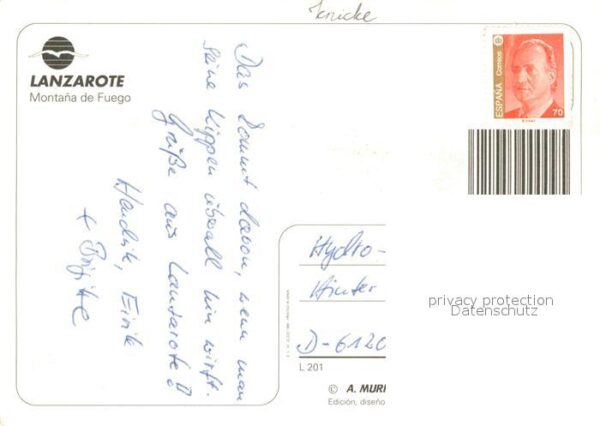 Knicke
LANZAROTE
Montaña de Fuego
Das kommt davon, wenn man
seine Kippen überall hin wirft.
Grüße aus Lanzarote!
Hendrik, Eirik
+ Brigitte
ESPAÑA
Correos
70
Hydro-
Hinter
D-6120
privacy protection
Datenschutz
L 201
© A. MURI
Edición, diseño